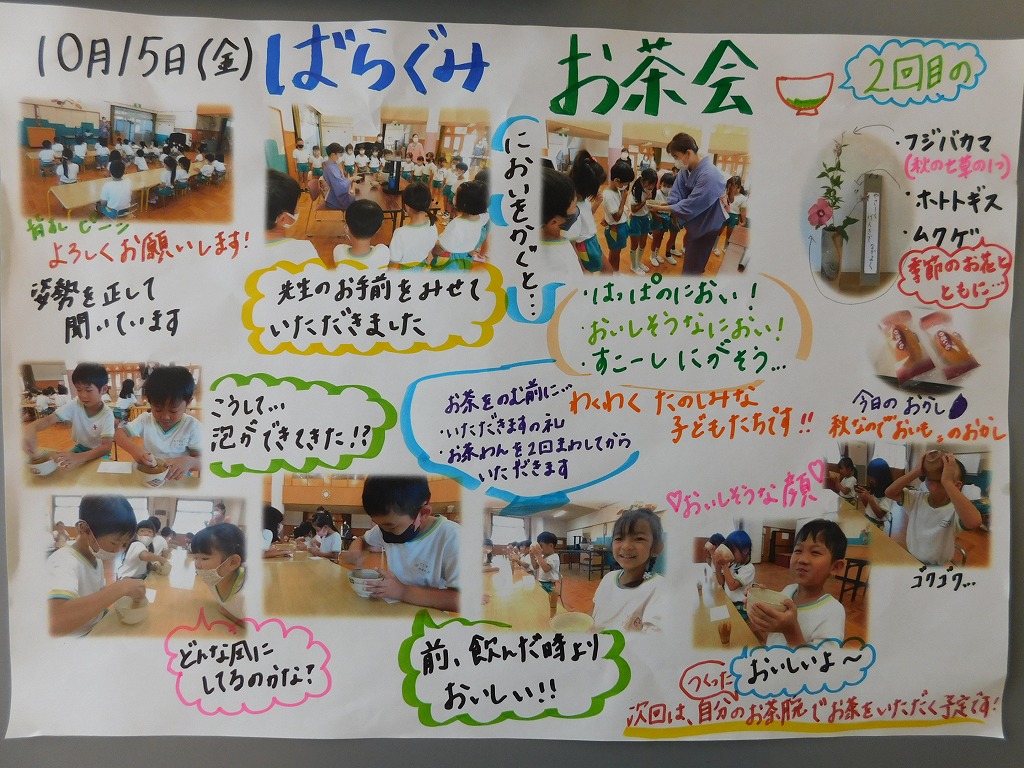 10月15日(金) ばらぐみ お茶会
2回目の
背乳ピーン
よろしくお願いします!
姿勢を正して
聞いています
先生のお手前をみせて
いただきました
においをかぐと…
・はっぱのにおい!
・おいしそうなにおい!
・すこーしにがそう…
・フジバカマ
(秋の七草の1つ)
・ホトトギス
・ムクゲ
季節のお花と
ともに…
今日のおかし
秋なので"おいも"のおかし
こうして…
泡ができてきた!?
お茶をのむ前に…
・いただきますの礼
・お茶わんを2回まわしてから
いただきます
わくわく たのしみな
子どもたちです!!
♡おいしそうな顔♡
ゴクゴク…
どんな風に
してるのかな?
前、飲んだ時より
おいしい!!
おいしいよ〜
つくった
次回は、自分のお茶腕でお茶をいただく予定です!